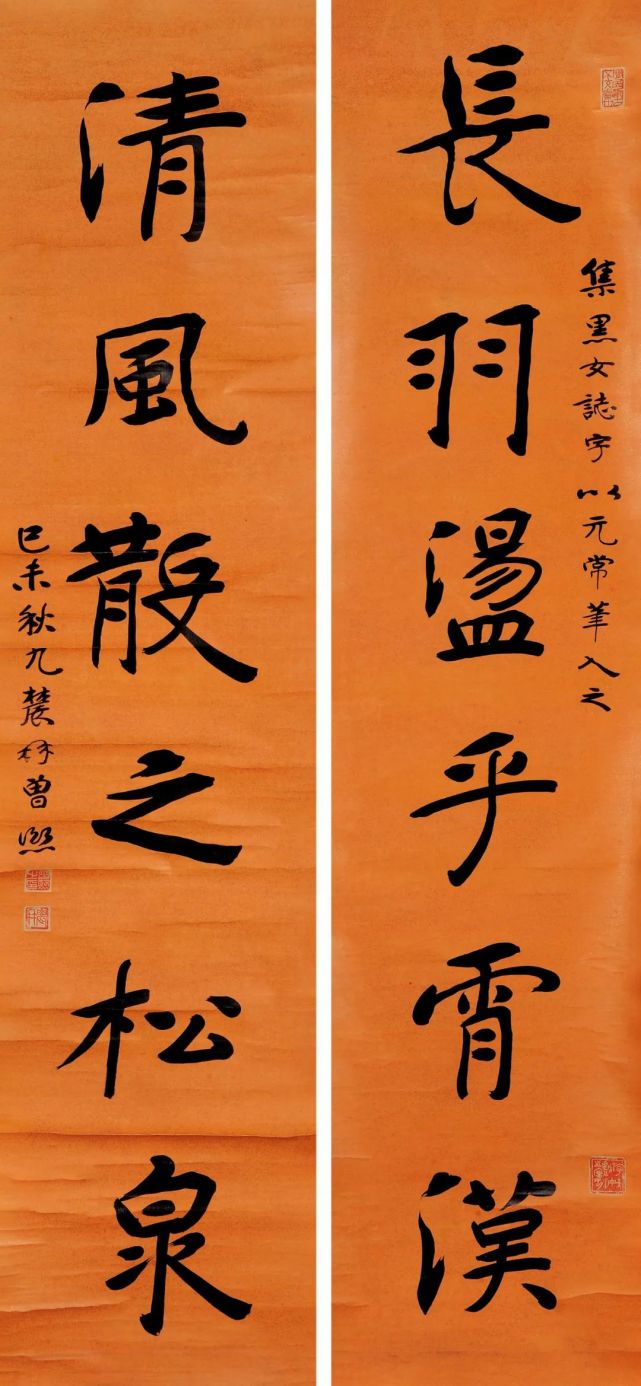 集黑女誌字以元常筆入之
長羽盪乎霄漢
清風散之松泉
己未秋九農髯曾熙